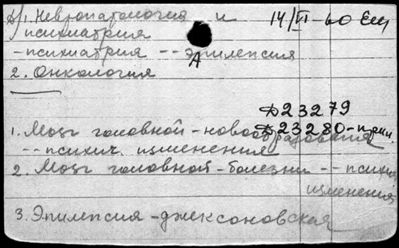 А/1. Невропатология и 14/VI-60 Ещ
психиатрия
-психиатрия -- эпилепсия
А
2. Онкология
Д23279
1. Мозг головной - новообразования Д23280-при
-- психич. изменения
2. Мозг головной - болезни -- психич
изменения
3. Эпилепсия - джексоновская